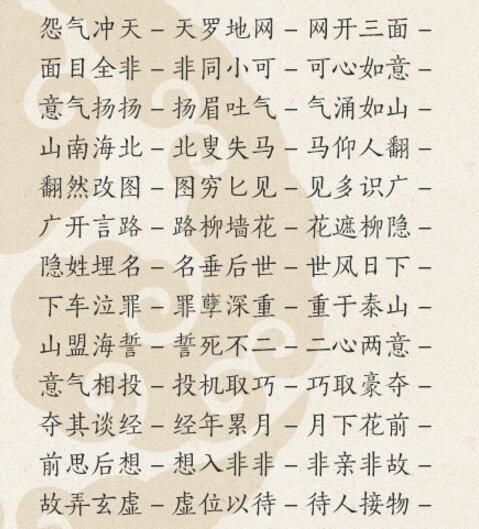 怨气冲天 – 天罗地网 – 网开三面 –
面目全非 – 非同小可 – 可心如意 –
意气扬扬 – 扬眉吐气 – 气涌如山 –
山南海北 – 北叟失马 – 马仰人翻 –
翻然改图 – 图穷匕见 – 见多识广 –
广开言路 – 路柳墙花 – 花遮柳隐 –
隐姓埋名 – 名垂后世 – 世风日下 –
下车泣罪 – 罪孽深重 – 重于泰山 –
山盟海誓 – 誓死不二 – 二心两意 –
意气相投 – 投机取巧 – 巧取豪夺 –
夺其谈经 – 经年累月 – 月下花前 –
前思后想 – 想入非非 – 非亲非故 –
故弄玄虚 – 虚位以待 – 待人接物 –